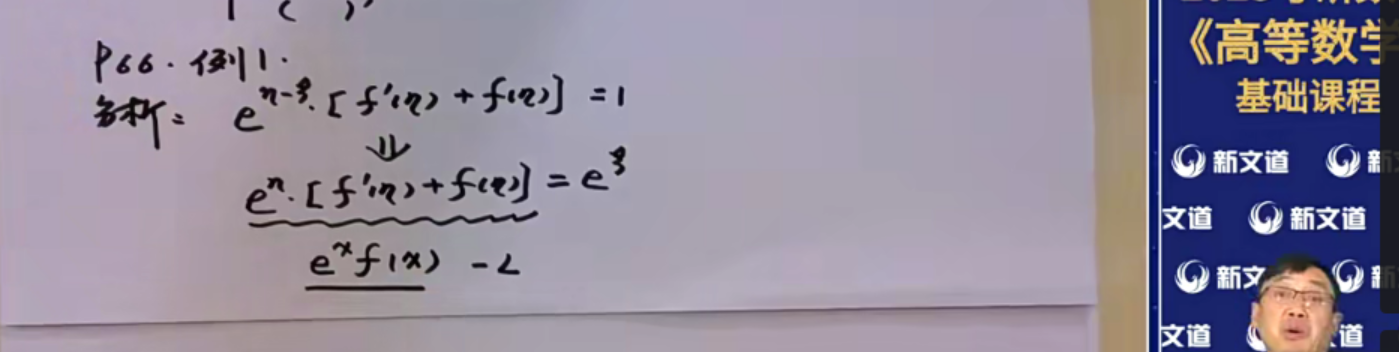 P66. 例1.
分析: e^{η-ξ}·[f'(η)+f(η)] = 1
⇓
e^η·[f'(η)+f(η)] = e^ξ
e^x f(x) - L
《高等数学
基础课程
新文道 新
文道 新文道
新文 新
文道 道